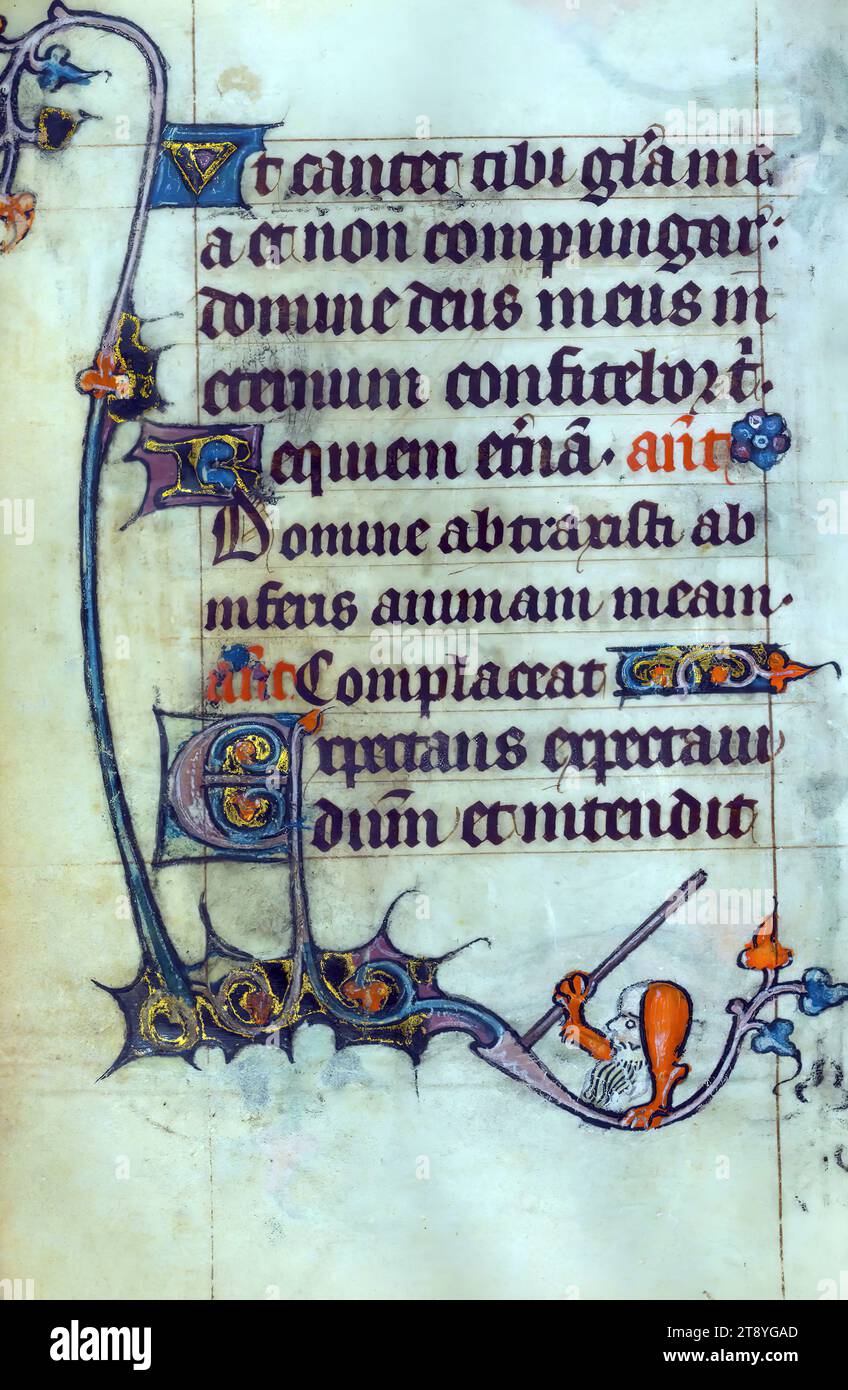 Ut cantet tibi gl'a me
a et non compungar:
domine deus meus in
eternum confitebor t'.
Requiem et'nā. añt
Domine abtraxisti ab
inferis animam meam.
añt Complaceat
Expectans expectaui
dnūm et intendit
alamy
Image ID: 2T8YGAD
www.alamy.com